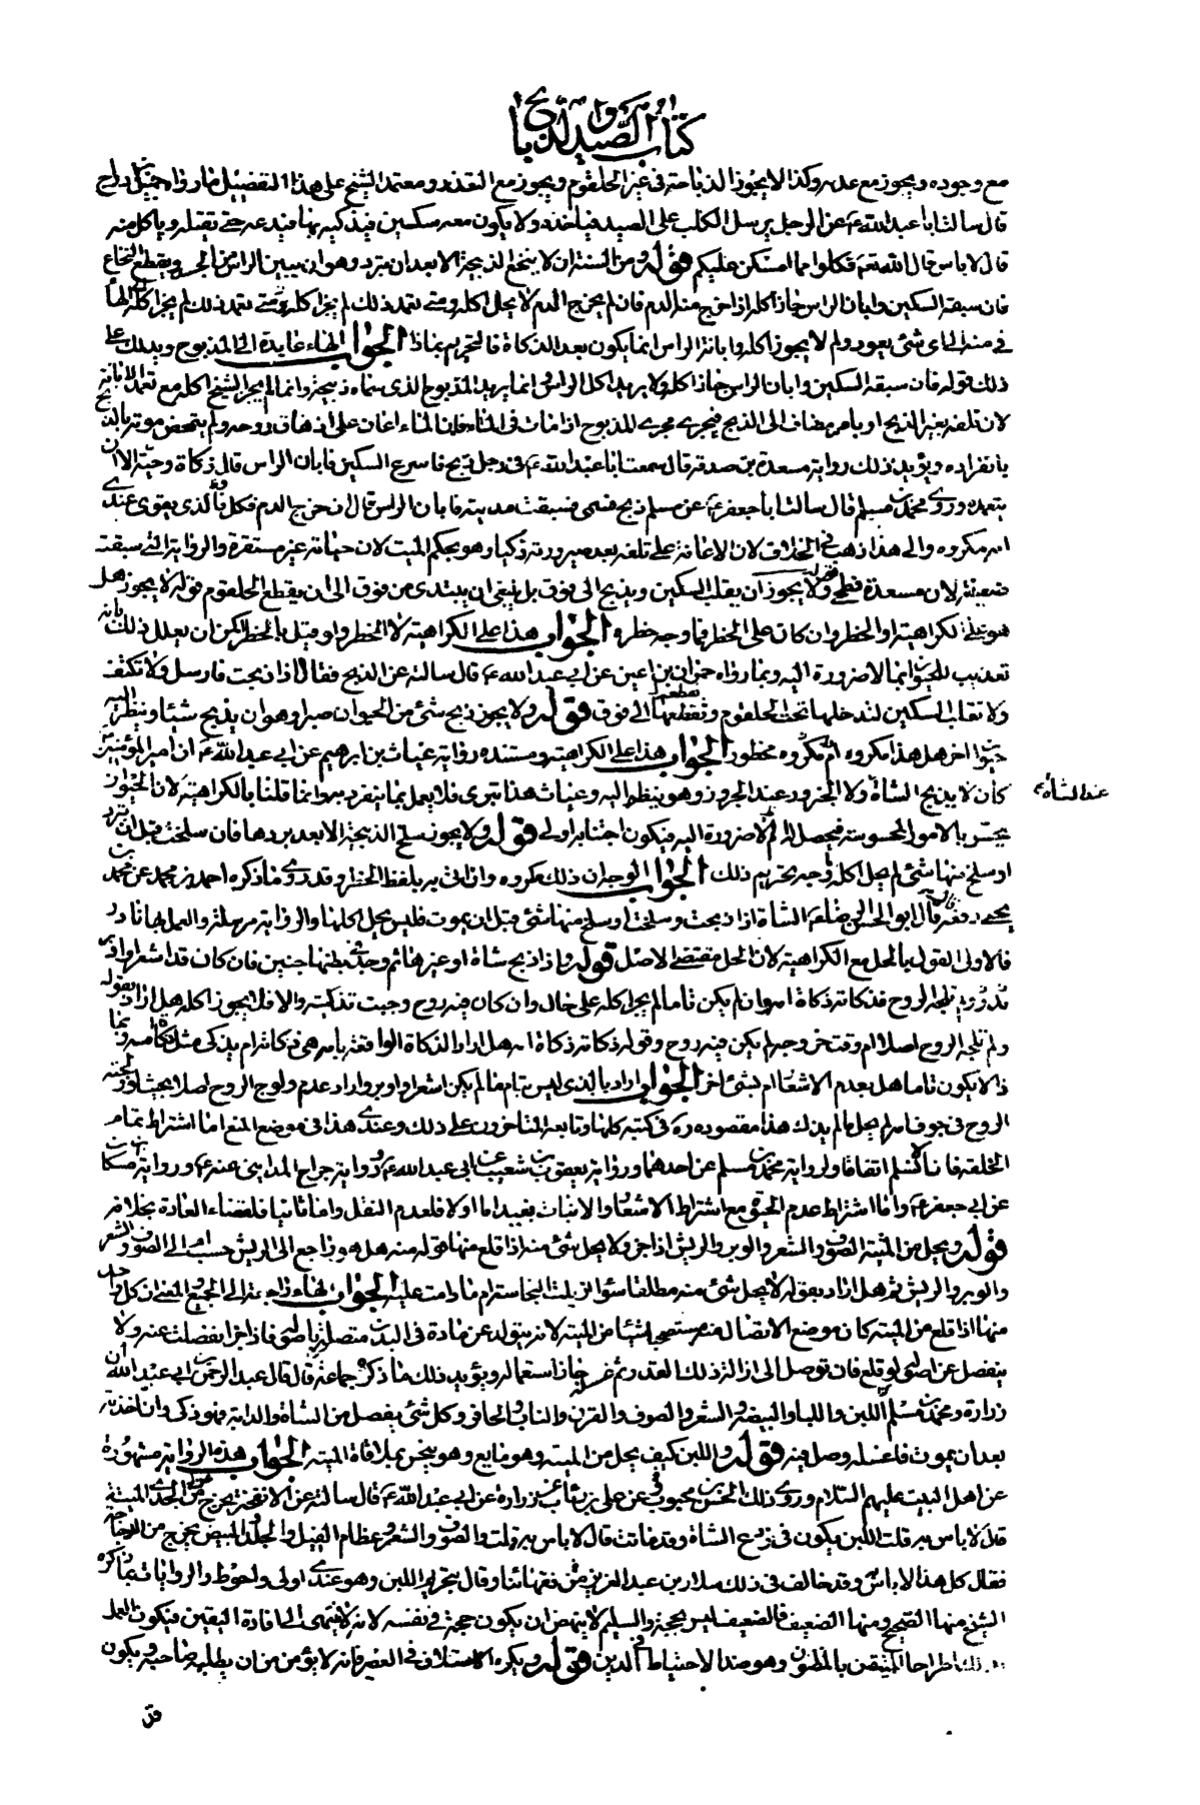 كتاب الصيد والذبايح
مع وجوده ويجوز مع عدمه وكذا لا يجوز الذباحة في غير الحلقوم ويجوز مع التعذر ومعتمد الشيخ على هذا التفصيل ما رواه جميل بن دراج
قال سالت ابا عبد الله ع عن الرجل يرسل الكلب على الصيد فياخذه ولا يكون معه سكين فيذكيه بها فيدعه حتى يقتله وياكل منه
قال لا باس قال الله تعم فكلوا مما امسكن عليكم قوله ومن السنة ان لا ينخع الذبيحة الا بعد ان تبرد وهو ان يبين الراس من الجسد ويقطع النخاع
فان سبقه السكين وابان الراس جاز اكله اذا خرج منه الدم فان لم يخرج الدم لا يحل اكله ومتى تعمد ذلك لم يجز اكله ومتى تعمد ذلك لم يجز اكله الهأ
في منه الى اى شئ يعود ولم لا يجوز اكله وابانة الراس انما يكون بعد الذكاة فالتحريم بماذا الجواب الهاء عايدة الى المذبوح ويدلك على
ذلك قوله فان سبقه السكين وابان الراس جاز اكله ولا يريد اكل الراس وانما يريد المذبوح الذى سماه ذبيحة وانما لم يجز الشيخ اكله مع تعمد الابانة
لان تلفه بغير الذبح او بامر مضاف الى الذبح فيجرى مجرى المذبوح اذا مات في الماء فان الماء اعان على اذهاق روحه ولم يتمحض موته بالذبح
بانفراده ويؤيد ذلك رواية مسعدة بن صدقة قال سمعت ابا عبد الله ع في رجل ذبح فاسرع السكين فابان الراس قال ذكاة وحية الا ان
يتعمده وروى محمد بن مسلم قال سالت ابا جعفر ع عن مسلم ذبح فسمى فسبقت مديته فابان الراس قال ان خرج الدم فكل والذى يقوى عندى
انه مكروه والى هذا ذهب في الخلاف لان الاعانة على تلفه بعد صيرورته ذكيا وهو بحكم الميت لان حياته غير مستقرة والرواية التى سبقت
ضعيفة لان مسعدة فطحى قوله ولا يجوز ان يقلب السكين ويذبح الى فوق بل ينبغى ان يبتدى من فوق الى ان يقطع الحلقوم قوله لا يجوز هل
هو على الكراهية او الحظر وان كان على الحظر فما وجه حظره الجواب هذا على الكراهية لا الحظر ولو قيل بالحظر امكن ان يعلل ذلك بانه
تعذيب للحيوان بما لا ضرورة اليه وبما رواه حمران بن اعين عن ابى عبد الله ع قال سالته عن الذبح فقال اذا ذبحت فارسل ولا تكتف
ولا تقلب السكين لتدخلها تحت الحلقوم وتقطعه الى فوق قوله ولا يجوز ذبح شئ من الحيوان صبرا وهو ان يذبح شيئا وينظر اليه
حيوان اخر هل هذا مكروه ام مكروه محظور الجواب هذا على الكراهية ومستنده رواية غياث بن ابرهيم عن ابى عبد الله ع ان امير المؤمنين ع
كان لا يذبح الشاة ولا الجزور عند الجزور وهو ينظر اليه وغياث هذا بترى فلا يعمل بما ينفرد به وانما قلنا بالكراهية لان الحيوان
عند الشاة ع
يحس بالامور المحسوسة فيحصل له الم لا ضرورة اليه فيكون اجتنابه اولى قوله ولا يجوز سلخ الذبيحة الا بعد بردها فان سلخت قبل ان تبرد
او سلخ منها شئ لم يحل اكله ما وجه تحريم ذلك الجواب الوجه ان ذلك مكروه وان اتى به بلفظ الحظر وقد روى ما ذكره احمد بن محمد عن محمد بن
يحيى رفعه قال قال ابو الحسن الرضا ع الشاة اذا ذبحت وسلخت او سلخ منها شئ قبل ان يموت فليس يحل اكلها والرواية مرسلة والعمل بها نادر
فالاولى القول بالحل مع الكراهية لان الحل مقتضى الاصل قوله واذا ذبح شاة او غيرها ثم وجد في بطنها جنين فان كان قد اشعر او اوبر
ولم تلجه الروح فذكاته ذكاة امه وان لم يكن تاما لم يجز اكله على حال وان كان فيه روح وجبت تذكيته والا فلا يجوز اكله هل اراد بقوله
ولم تلجه الروح اصلا ام وقت خروجه لم يكن فيه روح وقوله ذكاته ذكاة امه هل اراد الذكاة الواقعة بامه هى ذكاته ام يذكى مثل ذكاة امه وبما
ذا لا يكون تاما هل بعدم الاشعار ام بشئ اخر الجواب اراد بالذى ليس بتام ما لم يكن اشعر او اوبر واراد عدم ولوج الروح اصلا بحيث لو ولجته
الروح في جوف امه لم يحل ما لم يذك هذا مقصوده ره في كتبه كلها وتابعه المتاخرون على ذلك وعندى هذا في موضع المنع اما اشتراط تمام
الخلقة فانا نسلم اتفاقا ولرواية محمد بن مسلم عن احدهما ورواية يعقوب بن شعيب عن ابى عبد الله ع ورواية جراح المداينى عنه ع ورواية ابن مسكان
عن ابى جعفر ع واما اشتراط عدم الحيوة مع اشتراط الاشعار والانبات بعيد اما اولا فلعدم النقل واما ثانيا فلقضاء العادة بخلافه
قوله ويحل من الميتة الصوف والشعر والوبر والريش اذا جز ولا يحل شئ منه اذا قلع منها قوله منه هل هو راجع الى الريش حسب ام الى الصوف والشعر
والوبر والريش ثم هل اراد بقوله لا يحل شئ منه مطلقا سواء ازيلت النجاسة ام ما دامت عليه الجواب الهاء راجعة الى الجميع والمعنى ان كل واحد
منها اذا قلع من الميتة كان موضع الاتصال منه مستصحبا شيئا من الميتة لانه يتولد عن مادة في البدن متصلة باصله فاذا جز انفصلت عنه ولا
ينفصل عن اصله لو قلع فان توصل الى ازالة ذلك القدر ثم غسل جاز استعماله ويؤيد ذلك ما ذكره جماعة قال قال عبد الرحمن بن ابى عبد الله ان
زرارة ومحمد بن مسلم اللبن واللباء والبيضة والشعر والصوف والقرن والناب والحافر وكل شئ يفصل من الشاة والدابة فهو ذكى وان اخذته
بعد ان يموت فاغسله وصل فيه قوله واللبن كيف يحل من الميتة وهو مايع وهو ينجس بملاقاة الميتة الجواب هذه الرواية مشهورة
عن اهل البيت عليهم السلام وروى ذلك الحسن بن محبوب عن على بن رئاب عن زرارة عن ابى عبد الله ع قال سالته عن الانفحة يخرج من الجدى الميتة
قال لا باس به قلت اللبن يكون في ضرع الشاة وقد ماتت قال لا باس به قلت والصوف والشعر وعظام الفيل والجلد والبيض يخرج من الدجاجة
فقال كل هذا لا باس وقد خالف في ذلك سلار بن عبد العزيز من فقهائنا وقال بتحريم اللبن وهو عندى اولى واحوط والروايات بما ذكره
الشيخ منها الصحيح ومنها الضعيف فالضعيف ليس بحجة والسليم لا ينهض ان يكون حجة في نفسه لانه لا ينتهى الى افادة اليقين فيكون العمل
بذلك اطراحا للمتيقن بالمظنون وهو ضد الاحتياط في الدين قوله ويكره الاستلاف في العصير فانه لا يؤمن من ان يطلبه صاحبه ويكون
قد